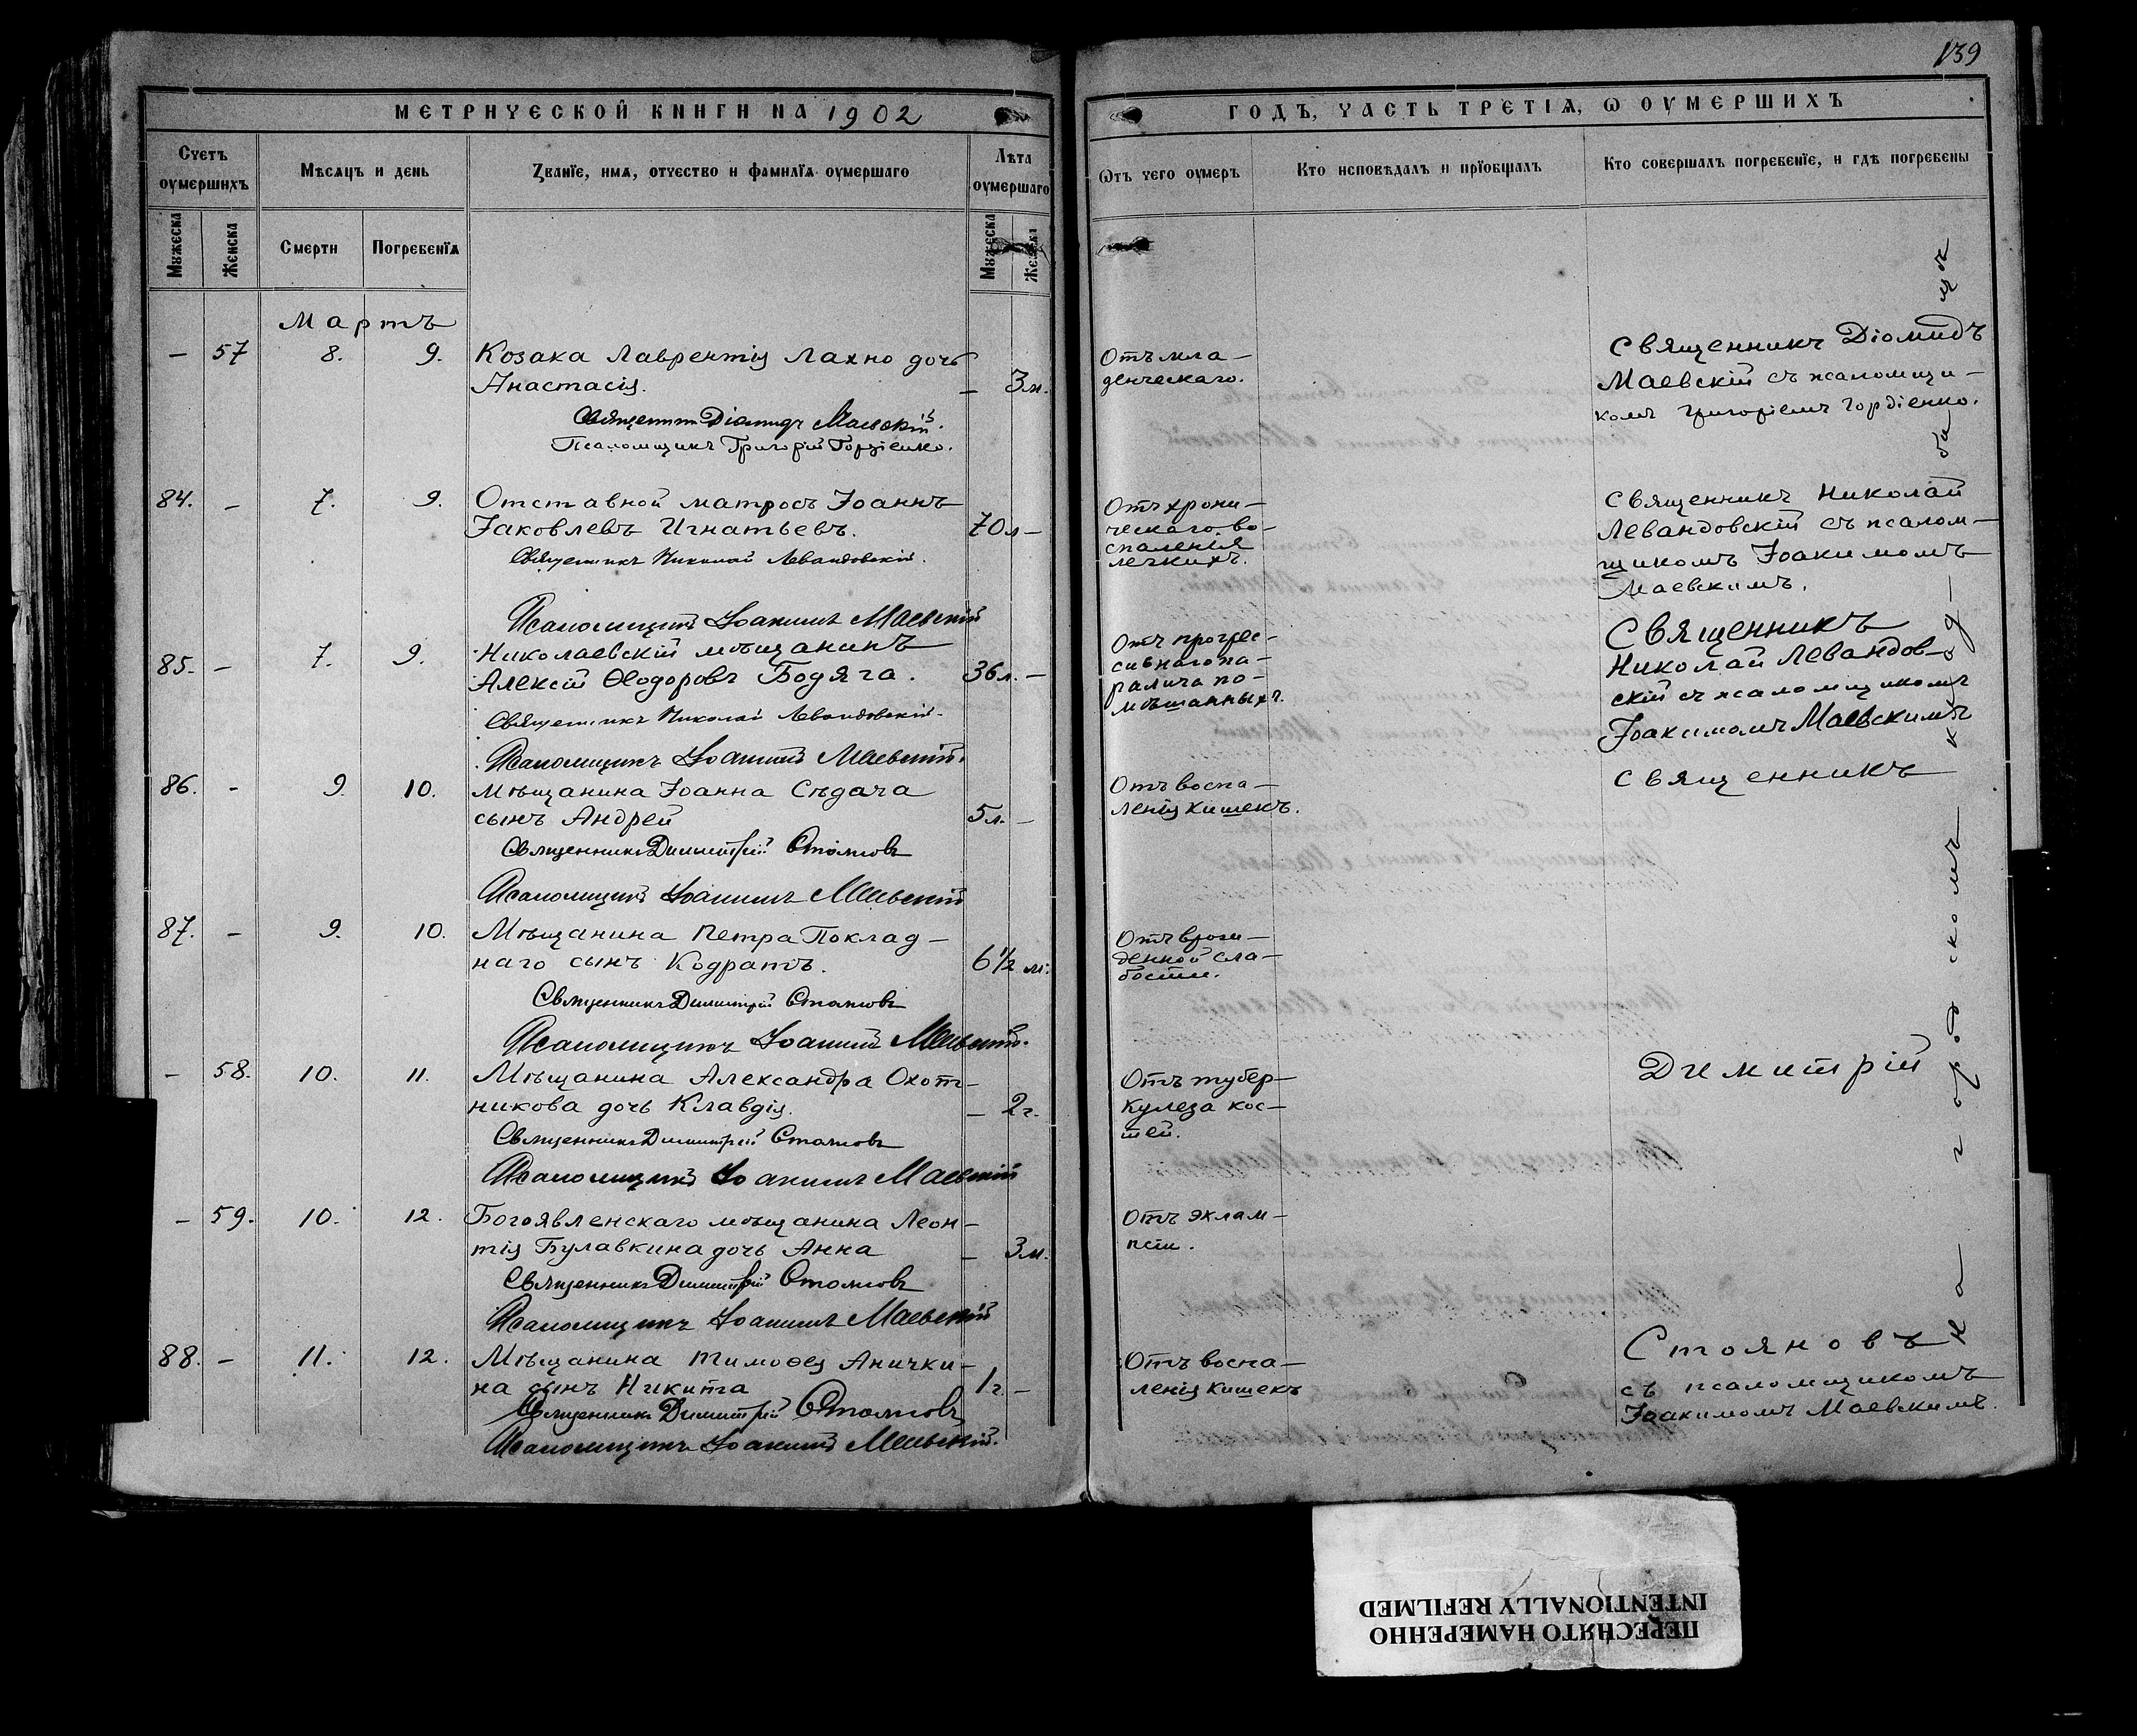 139
МЕТРИЧЕСКОЙ КНИГИ НА 1902
ГОДЪ, ЧАСТЬ ТРЕТІѦ, Ѡ ОУМЕРШИХЪ
Счетъ оумершихъ
Мѣсѧцъ и день
Званїе, имѧ, отчество и фамилїѧ оумершаго
Лѣта оумершаго
Ѿтъ чего оумеръ
Кто исповѣдалъ и прїобщалъ
Кто совершалъ погребенїе, и гдѣ погребены
Мужеска
Женска
Смерти
Погребенїѧ
Мужеска
Женска
Мартъ
— 57 8. 9. Козака Лаврентія Лахно дочь
Анастасія. — 3 м.
Священникъ Діомидъ Маевскій.
Псаломщикъ Григорій Гордіенко.
Отъ мла-
денческаго.
Священникъ Діомидъ
Маевскій съ псаломщи-
комъ Григоріемъ Гордіенко.
84. — 7. 9. Отставной матросъ Іоаннъ
Іаковлевъ Игнатьевъ. 70 л —
Священникъ Николай Левандовскій.
Псаломщикъ Іоакимъ Маевскій
Отъ хрони-
ческаго во-
спаленія
легкихъ.
Священникъ Николай
Левандовскій съ псалом-
щикомъ Іоакимомъ
Маевскимъ.
85. — 7. 9. Николаевскій мѣщанинъ
Алексій Ѳеодоровъ Бодяга. 36 л. —
Священникъ Николай Левандовскій.
Псаломщикъ Іоакимъ Маевскій.
Отъ прогрес-
сивнаго па-
ралича по-
мѣшанныхъ.
Священникъ
Николай Левандов-
скій съ псаломщикомъ
Іоакимомъ Маевскимъ
86. — 9. 10. Мѣщанина Іоанна Сѣдача
сынъ Андрей 5 л. —
Священникъ Димитрій Стояновъ
Псаломщикъ Іоакимъ Маевскій
Отъ воспа-
ленія кишекъ.
Священникъ
87. — 9. 10. Мѣщанина Петра Поклад-
наго сынъ Кодратъ. 6 1/2 м.
Священникъ Димитрій Стояновъ
Псаломщикъ Іоакимъ Маевскій.
Отъ врож-
денной сла-
бости.
— 58. 10. 11. Мѣщанина Александра Охот-
никова дочь Клавдія. — 2 г.
Священникъ Димитрій Стояновъ
Псаломщикъ Іоакимъ Маевскій
Отъ тубер-
кулеза кос-
тей.
Димитрій
— 59. 10. 12. Богоявленскаго мѣщанина Леон-
тія Булавкина дочь Анна — 3 м.
Священникъ Димитрій Стояновъ
Псаломщикъ Іоакимъ Маевскій
Отъ эклам-
псіи.
88. — 11. 12. Мѣщанина Тимоѳея Анички-
на сынъ Никита 1 г. —
Священникъ Димитрій Стояновъ
Псаломщикъ Іоакимъ Маевскій.
Отъ воспа-
ленія кишекъ
Стояновъ
съ псаломщикомъ
Іоакимомъ Маевскимъ.
На городскомъ кладбищѣ
ПЕРЕСНЯТО НАМЕРЕННО
INTENTIONALLY REFILMED